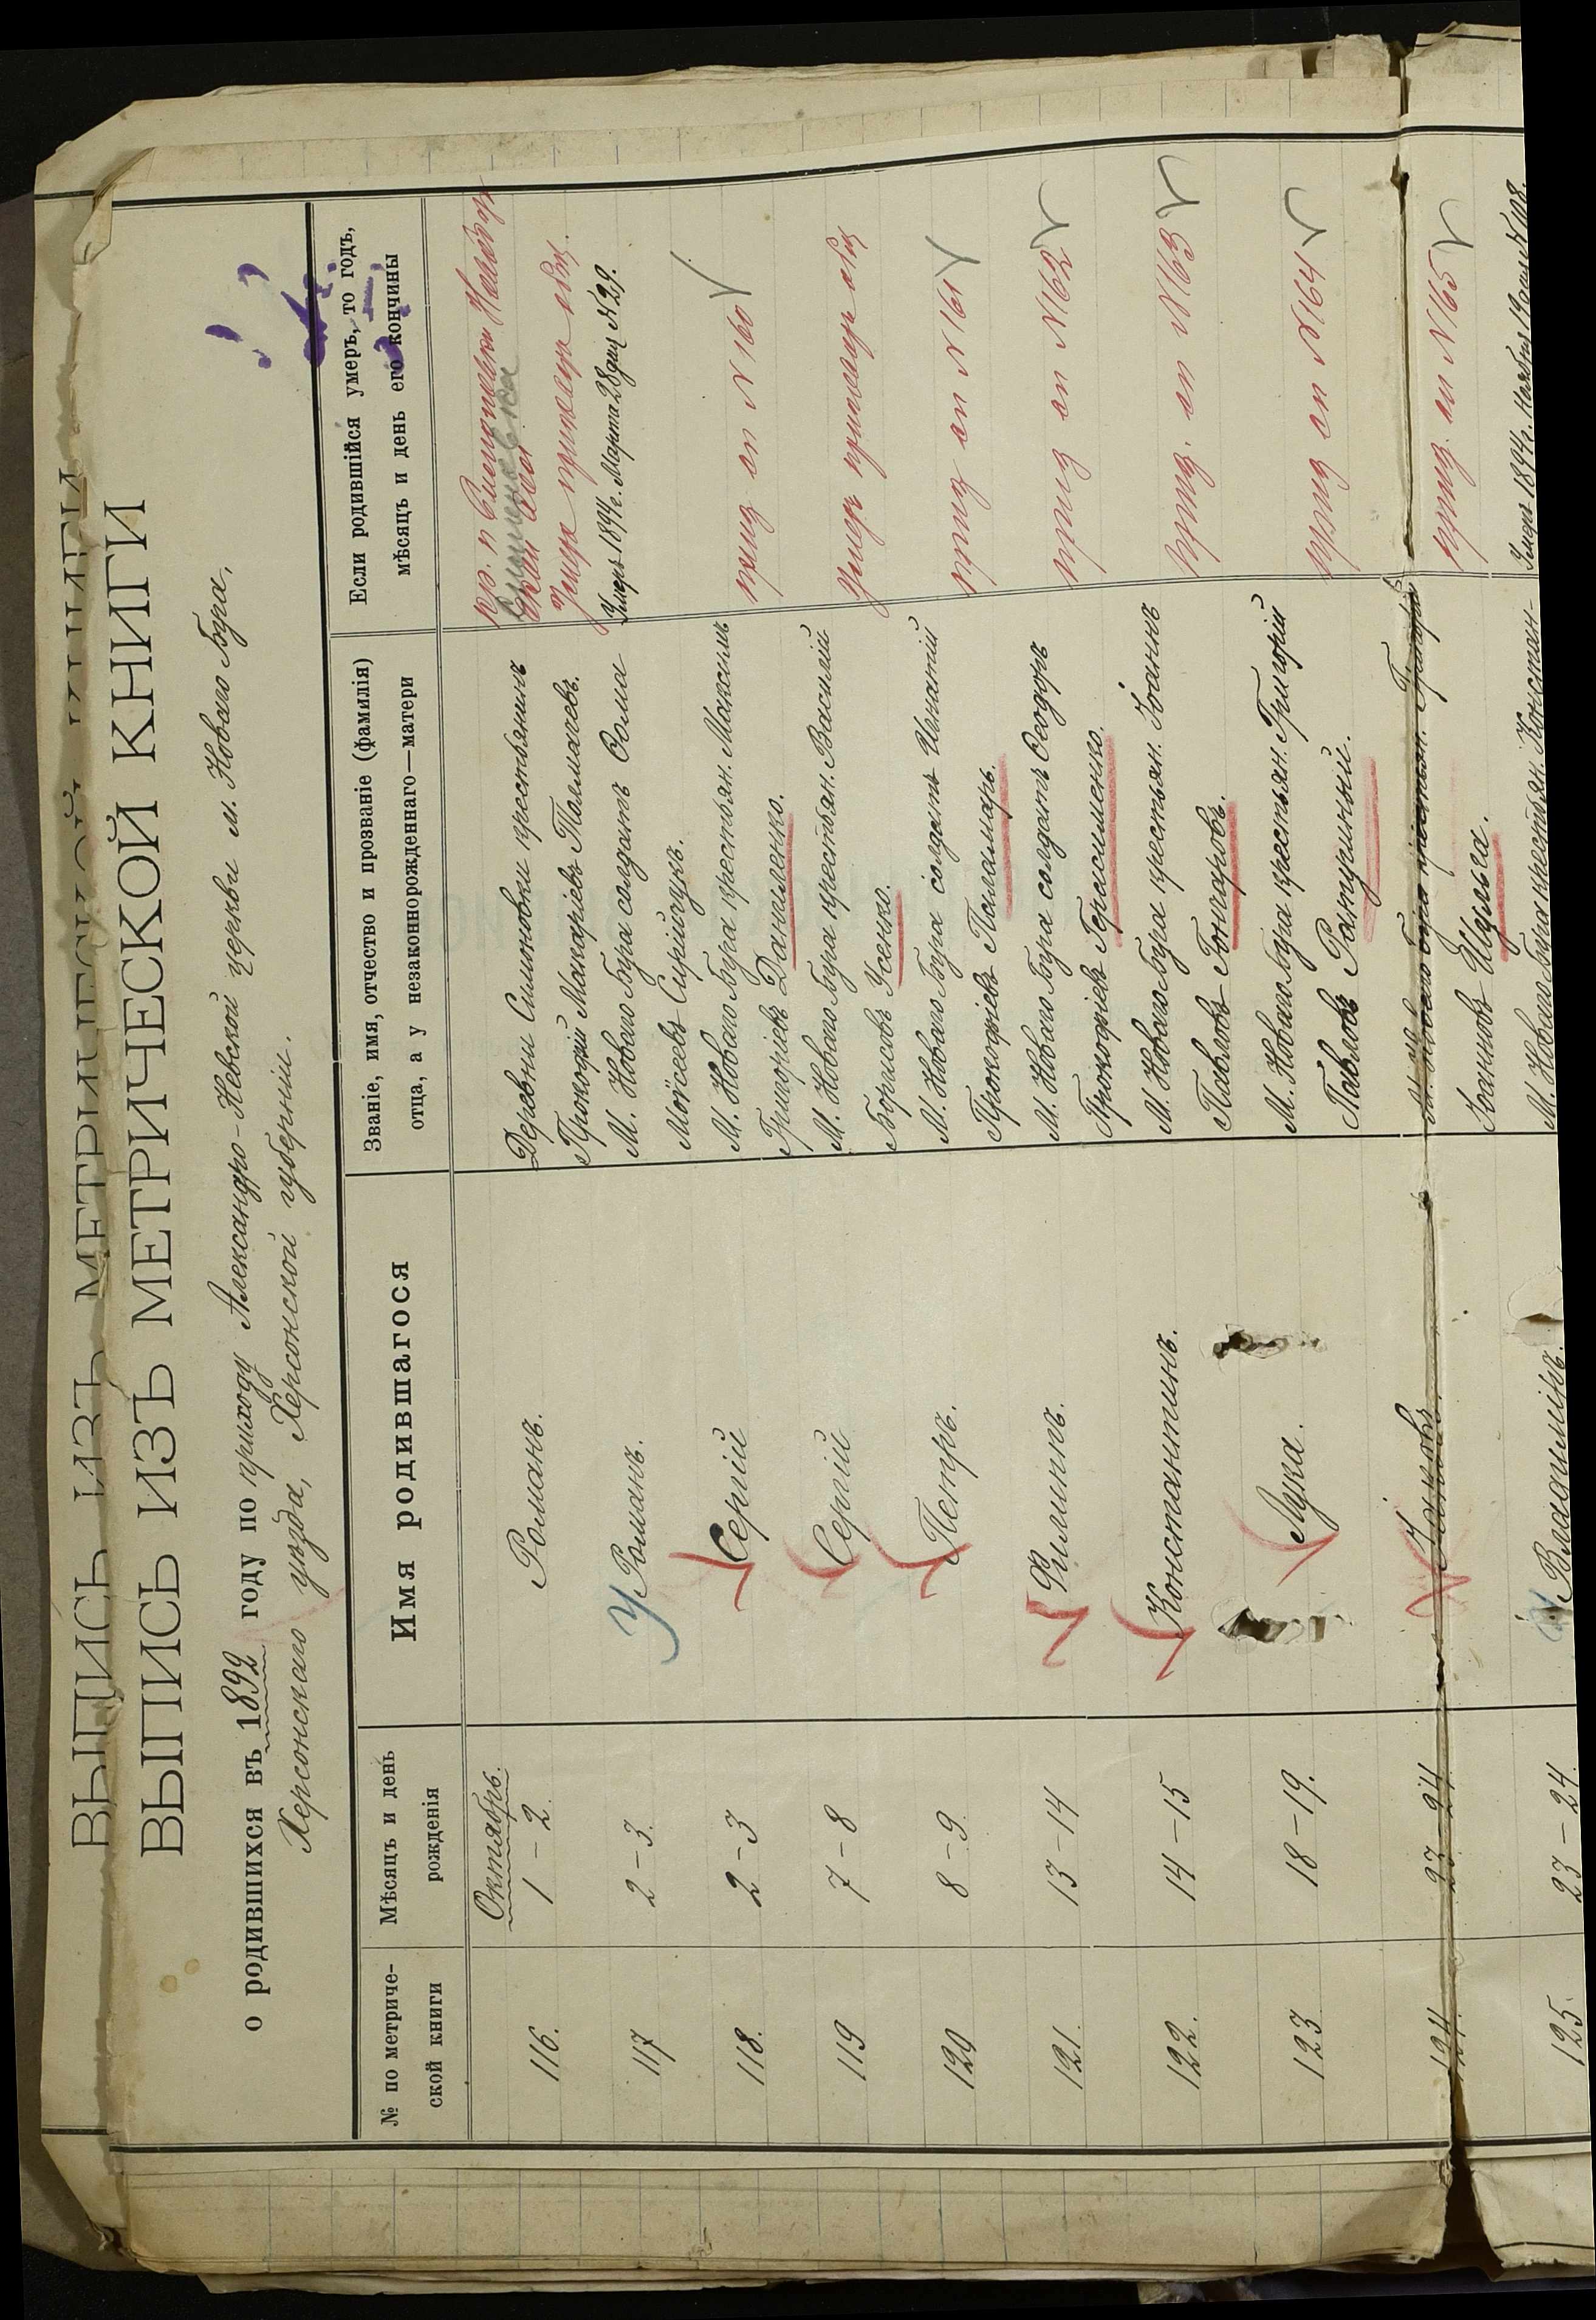 ВЫПИСЬ ИЗЪ МЕТРИЧЕСКОЙ КНИГИ
ВЫПИСЬ ИЗЪ МЕТРИЧЕСКОЙ КНИГИ
о родившихся въ 1892 году по приходу Александро-Невской церкви м. Новаго Буга,
Херсонскаго уѣзда, Херсонской губерніи.
№ по метриче-
ской книги
Мѣсяцъ и день
рожденія
Имя родившагося
Званіе, имя, отчество и прозваніе (фамилія)
отца, а у незаконнорожденнаго—матери
Если родившійся умеръ, то годъ,
мѣсяцъ и день его кончины
Октябрь.
116.
1 – 2.
Романъ.
Деревни Симоновки крестьянинъ
Прокофій Макаріевъ Толмачевъ.
117
2 – 3.
У Романъ.
М. Новаго Буга солдатъ Ѳома
Моѵсеевъ Сиригоукъ.
Умеръ 1894 г. Марта 28 дня № 29.
118.
2 – 3
Сергій
М. Новаго Буга крестьян. Максимъ
Григоріевъ Даниленко.
приз оп N 160
119
7 – 8
Сергій
М. Новаго Буга крестьян. Василій
Борисовъ Усенко.
Умеръ
120
8 – 9.
Петръ.
М. Новаго Буга солдатъ Игнатій
Прокофіевъ Паламаръ.
приз оп N 161
121.
13 – 14
Филиппъ.
М. Новаго Буга солдатъ Ѳеодоръ
Прокофіевъ Герасименко.
приз оп N 162
122.
14 – 15
Константинъ.
М. Новаго Буга крестьян. Іоаннъ
Павловъ Гончаровъ.
приз. оп N 163
123
18 – 19.
Лука.
М. Новаго Буга крестьян. Григорій
Павловъ Ратушный.
приз оп N 164
124.
23 – 24.
Іаковъ.
М. Новаго Буга крестьян. Григорій
Іоанновъ Шульга.
приз. оп N 165
125.
23 – 24.
Владиміръ.
М. Новаго Буга крестьян. Констан-
Умеръ 1894 г. Ноября 19 дня № 108.